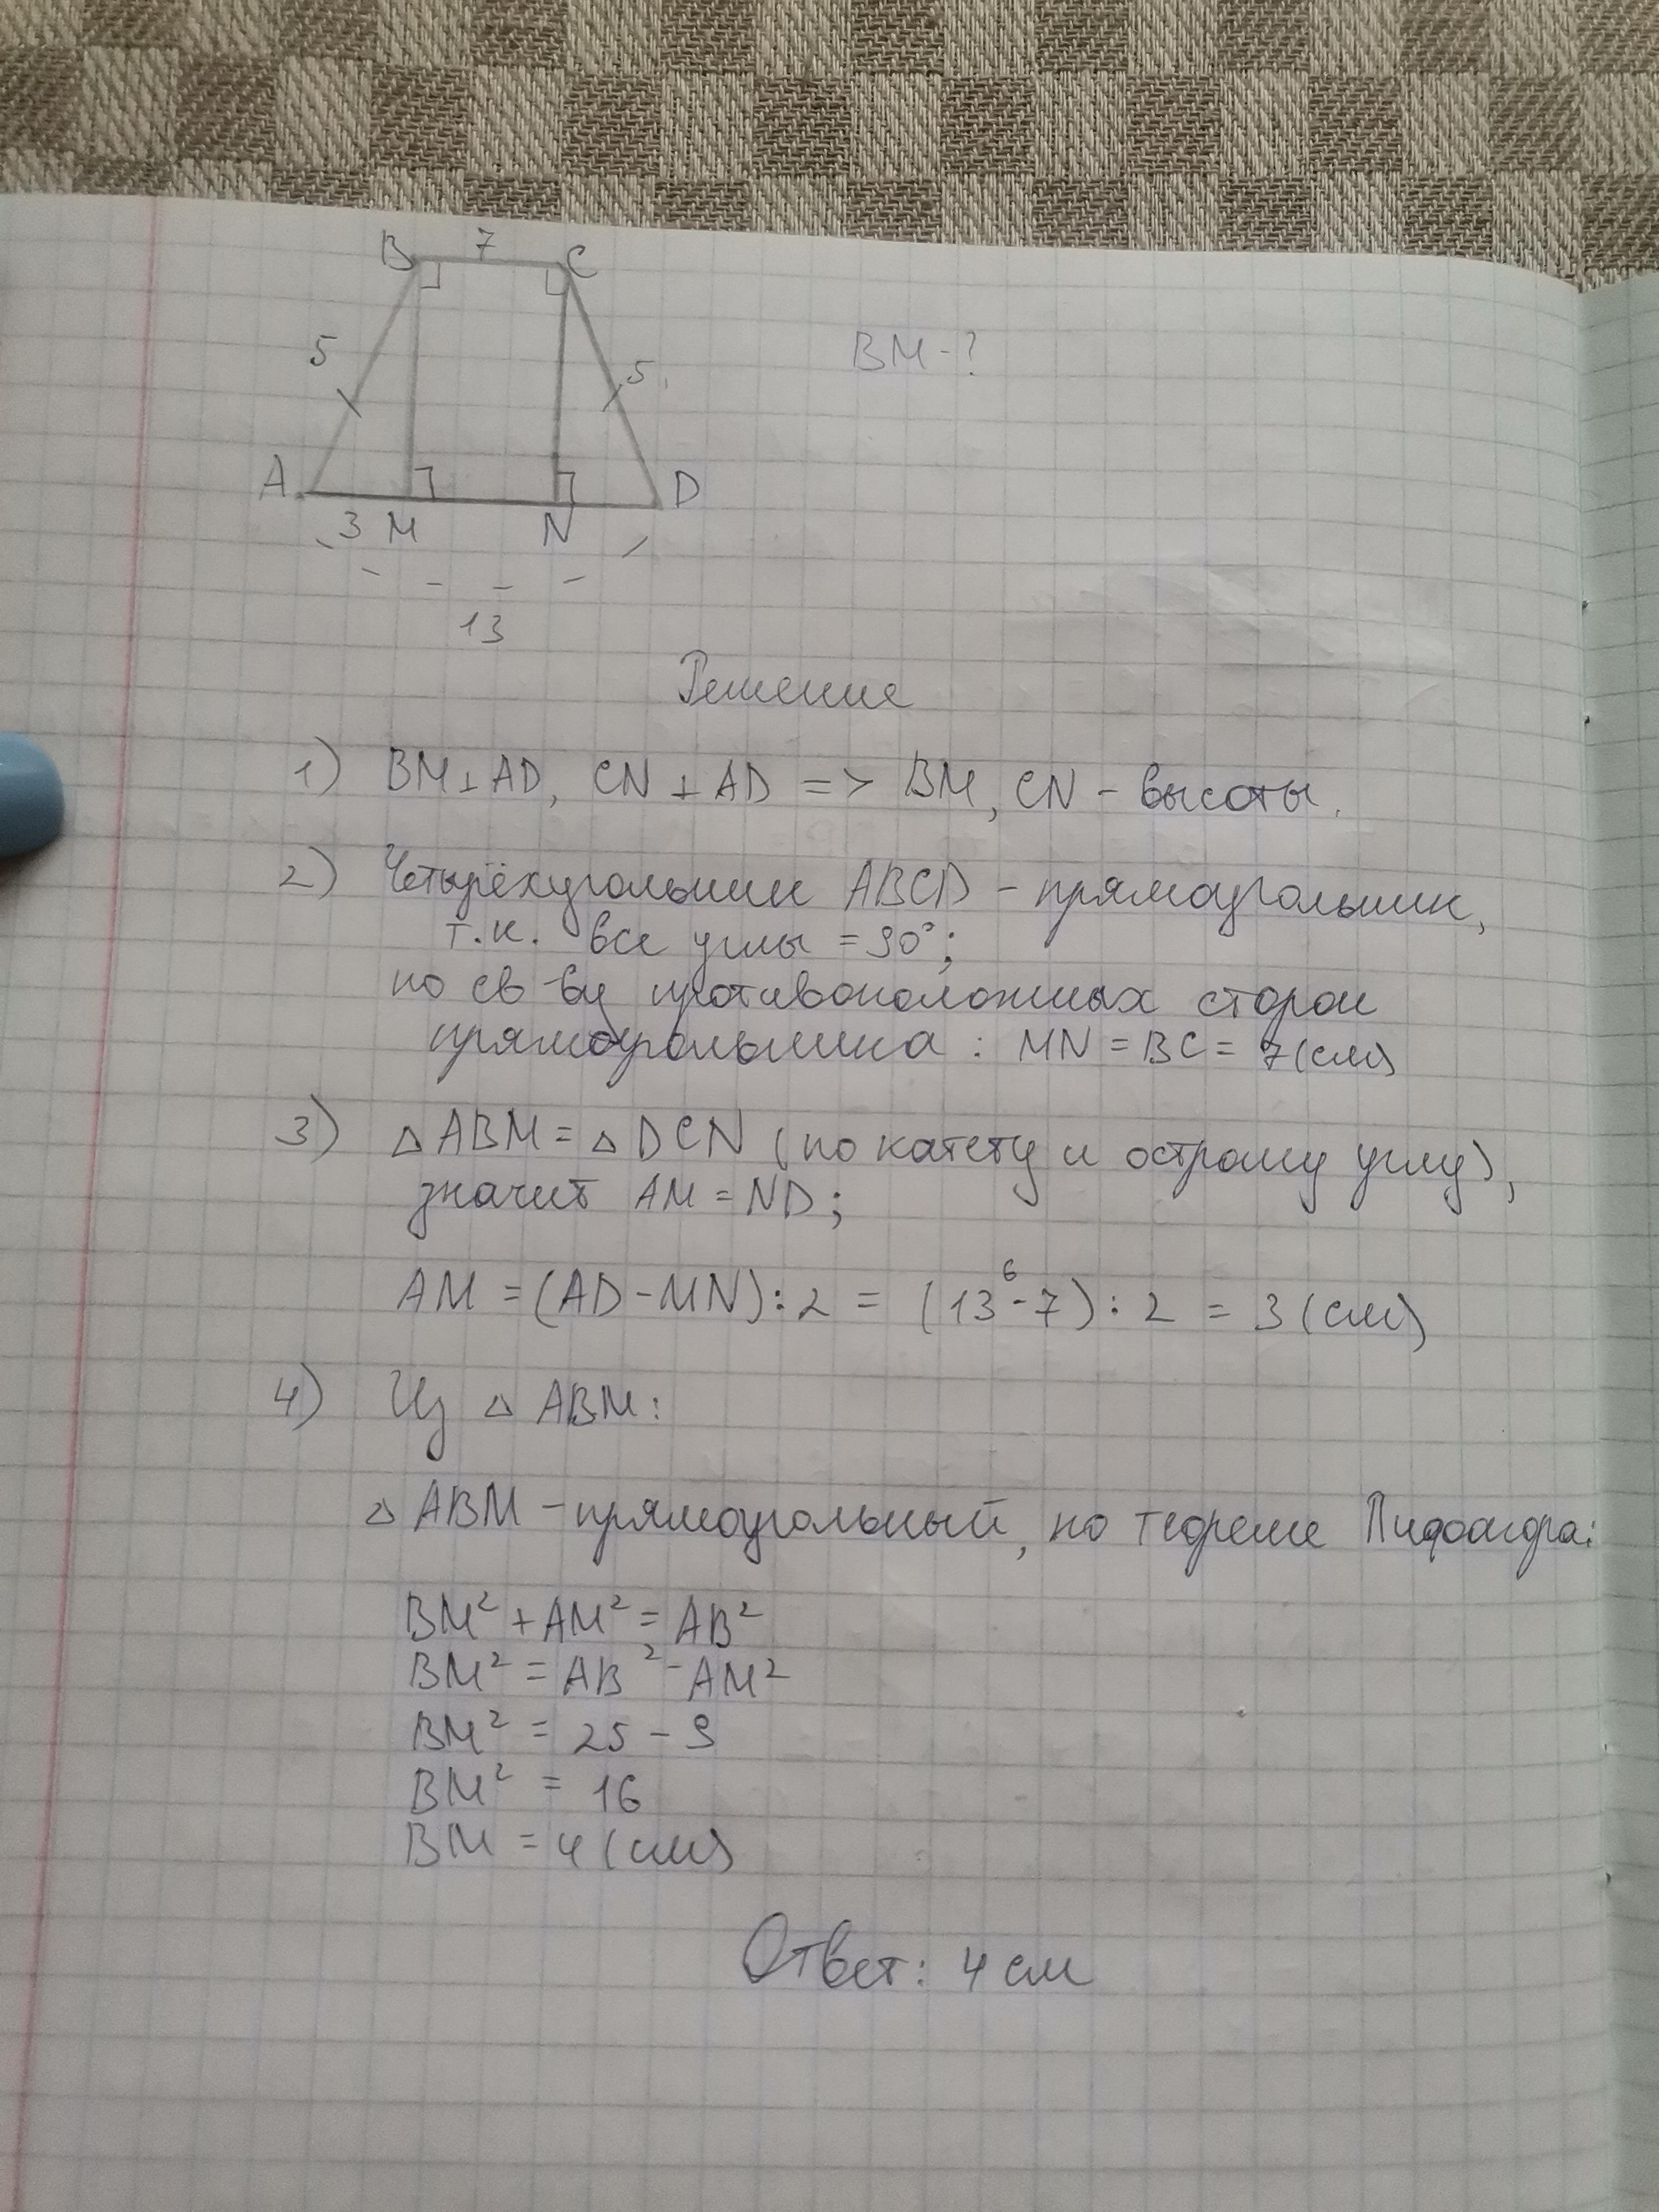 B 7 C
5 5
BM-?
A 3 M N D
13
Решение
1) BM⊥AD, CN⊥AD => BM, CN - высоты.
2) Четырёхугольник ABCD - прямоугольник,
т.к. все углы = 90°;
по св-ву противоположных сторон
прямоугольника: MN = BC = 7(см)
3) △ABM = △DCN (по катету и острому углу),
значит AM = ND;
AM = (AD-MN):2 = (13-7):2 = 3(см)
6
4) Из △ABM:
△ABM - прямоугольный, по теореме Пифагора:
BM² + AM² = AB²
BM² = AB² - AM²
BM² = 25 - 9
BM² = 16
BM = 4(см)
Ответ: 4 см